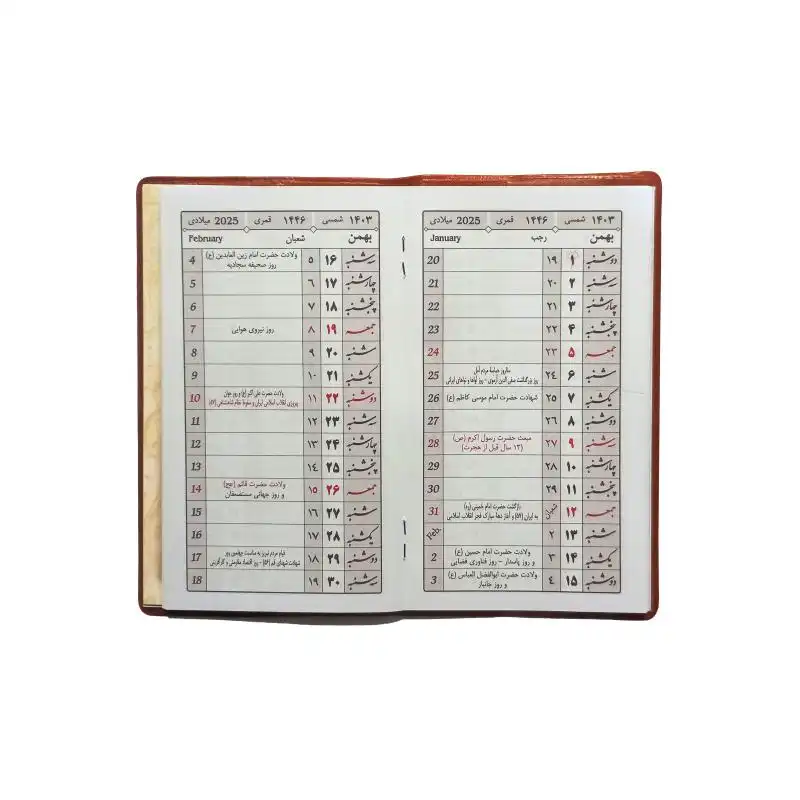 ۱۴۰۳ شمسی ۱۴۴۶ قمری 2025 میلادی
بهمن رجب January
دوشنبه ۱ ۱۹ 20
سه‌شنبه ۲ ۲۰ 21
چهارشنبه ۳ ۲۱ 22
پنجشنبه ۴ ۲۲ 23
جمعه ۵ ۲۳ 24
شنبه ۶ ۲۴ 25
سالروز حماسهٔ مردم آمل
روز بزرگداشت صفی الدین ارموی - روز آواها و نواهای ایرانی
یکشنبه ۷ ۲۵ شهادت حضرت امام موسی کاظم (ع) 26
دوشنبه ۸ ۲۶ 27
سه‌شنبه ۹ ۲۷ 28
مبعث حضرت رسول اکرم (ص)
(۱۳ سال قبل از هجرت)
چهارشنبه ۱۰ ۲۸ 29
پنجشنبه ۱۱ ۲۹ 30
جمعه ۱۲ شعبان 31
بازگشت حضرت امام خمینی (ره)
به ایران (۵۷) و آغاز دههٔ مبارک فجر انقلاب اسلامی
شنبه ۱۳ ۲ Feb.
یکشنبه ۱۴ ۳ 2
ولادت حضرت امام حسین (ع)
و روز پاسدار - روز فناوری فضایی
دوشنبه ۱۵ ۴ 3
ولادت حضرت ابوالفضل العباس (ع)
و روز جانباز
۱۴۰۳ شمسی ۱۴۴۶ قمری 2025 میلادی
بهمن شعبان February
سه‌شنبه ۱۶ ۵ 4
ولادت حضرت امام زین العابدین (ع)
روز صحیفه سجادیه
چهارشنبه ۱۷ ۶ 5
پنجشنبه ۱۸ ۷ 6
جمعه ۱۹ ۸ روز نیروی هوایی 7
شنبه ۲۰ ۹ 8
یکشنبه ۲۱ ۱۰ 9
دوشنبه ۲۲ ۱۱ 10
ولادت حضرت علی اکبر (ع) و روز جوان
پیروزی انقلاب اسلامی ایران و سقوط نظام شاهنشاهی (۵۷)
سه‌شنبه ۲۳ ۱۲ 11
چهارشنبه ۲۴ ۱۳ 12
پنجشنبه ۲۵ ۱۴ 13
جمعه ۲۶ ۱۵ 14
ولادت حضرت قائم (عج)
و روز جهانی مستضعفان
شنبه ۲۷ ۱۶ 15
یکشنبه ۲۸ ۱۷ 16
دوشنبه ۲۹ ۱۸ 17
قیام مردم تبریز به مناسبت چهلمین روز
شهادت شهدای قم (۵۶) - روز اقتصاد مقاومتی و کارآفرینی
سه‌شنبه ۳۰ ۱۹ 18